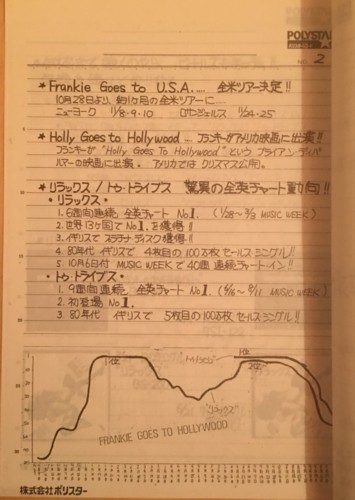 POLYSTAR
NO. 2
★ Frankie Goes to U.S.A. .... 全米ツアー決定 !!
10月28日より、約1ケ月の全米ツアーに....
ニューヨーク 11/8・9・10 ロサンジェルス 11/24・25
★ Holly Goes to Hollywood .... フランキーがアメリカ映画に出演 !!
フランキーが "Holly Goes To Hollywood" という ブライアン・デ・パ
ルマーの映画に出演。アメリカでは クリスマス公開。
★ リラックス / トゥ・トライブス 驚異の全英チャート動向 !!
・リラックス・
1. 6週間連続 全英チャート No.1. (1/28〜3/3 MUSIC WEEK)
2. 世界13ヶ国で No.1を獲得 !!
3. イギリスで プラチナディスク獲得 !!
4. 80年代 イギリスで 4枚目の100万枚セールス・シングル !!
5. 10月6日付 MUSIC WEEKで 40週 連続チャート・イン !!
・トゥ・トライブス・
1. 9週間連続 全英チャート No.1. (6/16〜8/11 MUSIC WEEK)
2. 初登場 No.1.
3. 80年代 イギリスで 5枚目の100万枚セールス・シングル !!
1
1位
1位
2位
10
20
30
40
50
FRANKIE GOES TO HOLLYWOOD
株式会社ポリスター